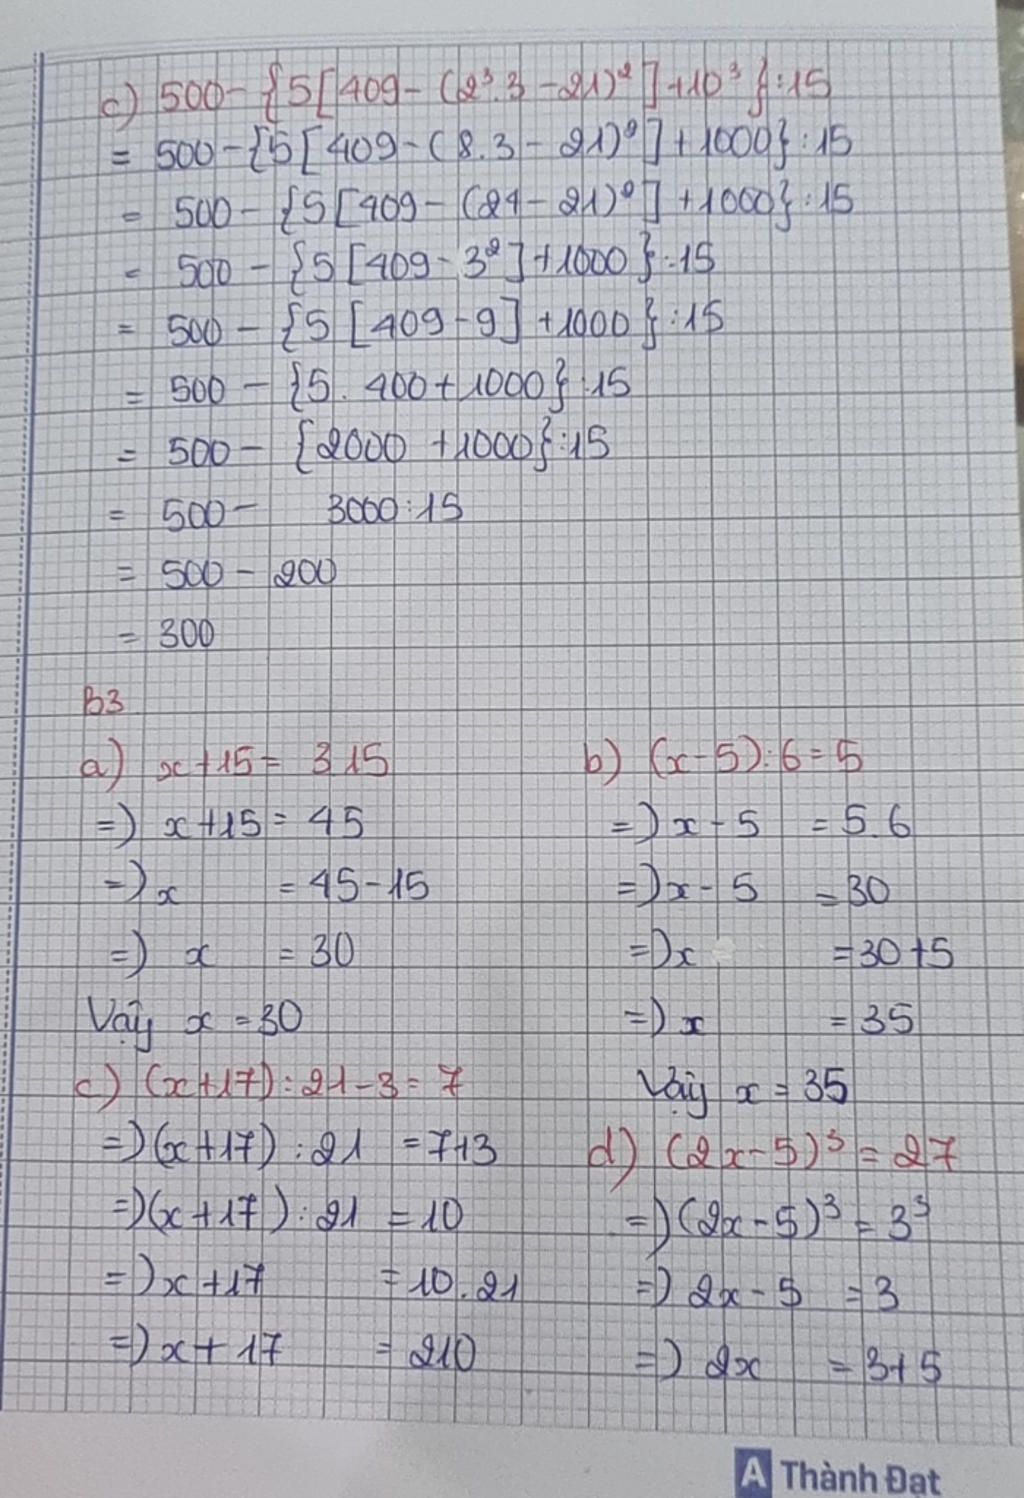 c) 500-{5[409-(2³.3-21)²]+10³}:15
= 500-{5[409-(8.3-21)²]+1000}:15
= 500-{5[409-(24-21)²]+1000}:15
= 500-{5[409-3²]+1000}:15
= 500-{5[409-9]+1000}:15
= 500-{5.400+1000}:15
= 500-{2000+1000}:15
= 500- 3000:15
= 500-200
= 300
B3
a) x+15= 3.15
=) x+15= 45
=) x = 45-15
=) x = 30
Vậy x = 30
b) (x-5):6=5
=) x-5 = 5.6
=) x-5 = 30
=) x = 30+5
=) x = 35
Vậy x = 35
c) (x+17):21-3=7
=) (x+17):21 = 7+3
=) (x+17):21 = 10
=) x+17 = 10.21
=) x+17 = 210
d) (2x-5)³=27
=) (2x-5)³=3³
=) 2x-5 = 3
=) 2x = 3+5
A Thành Đạt